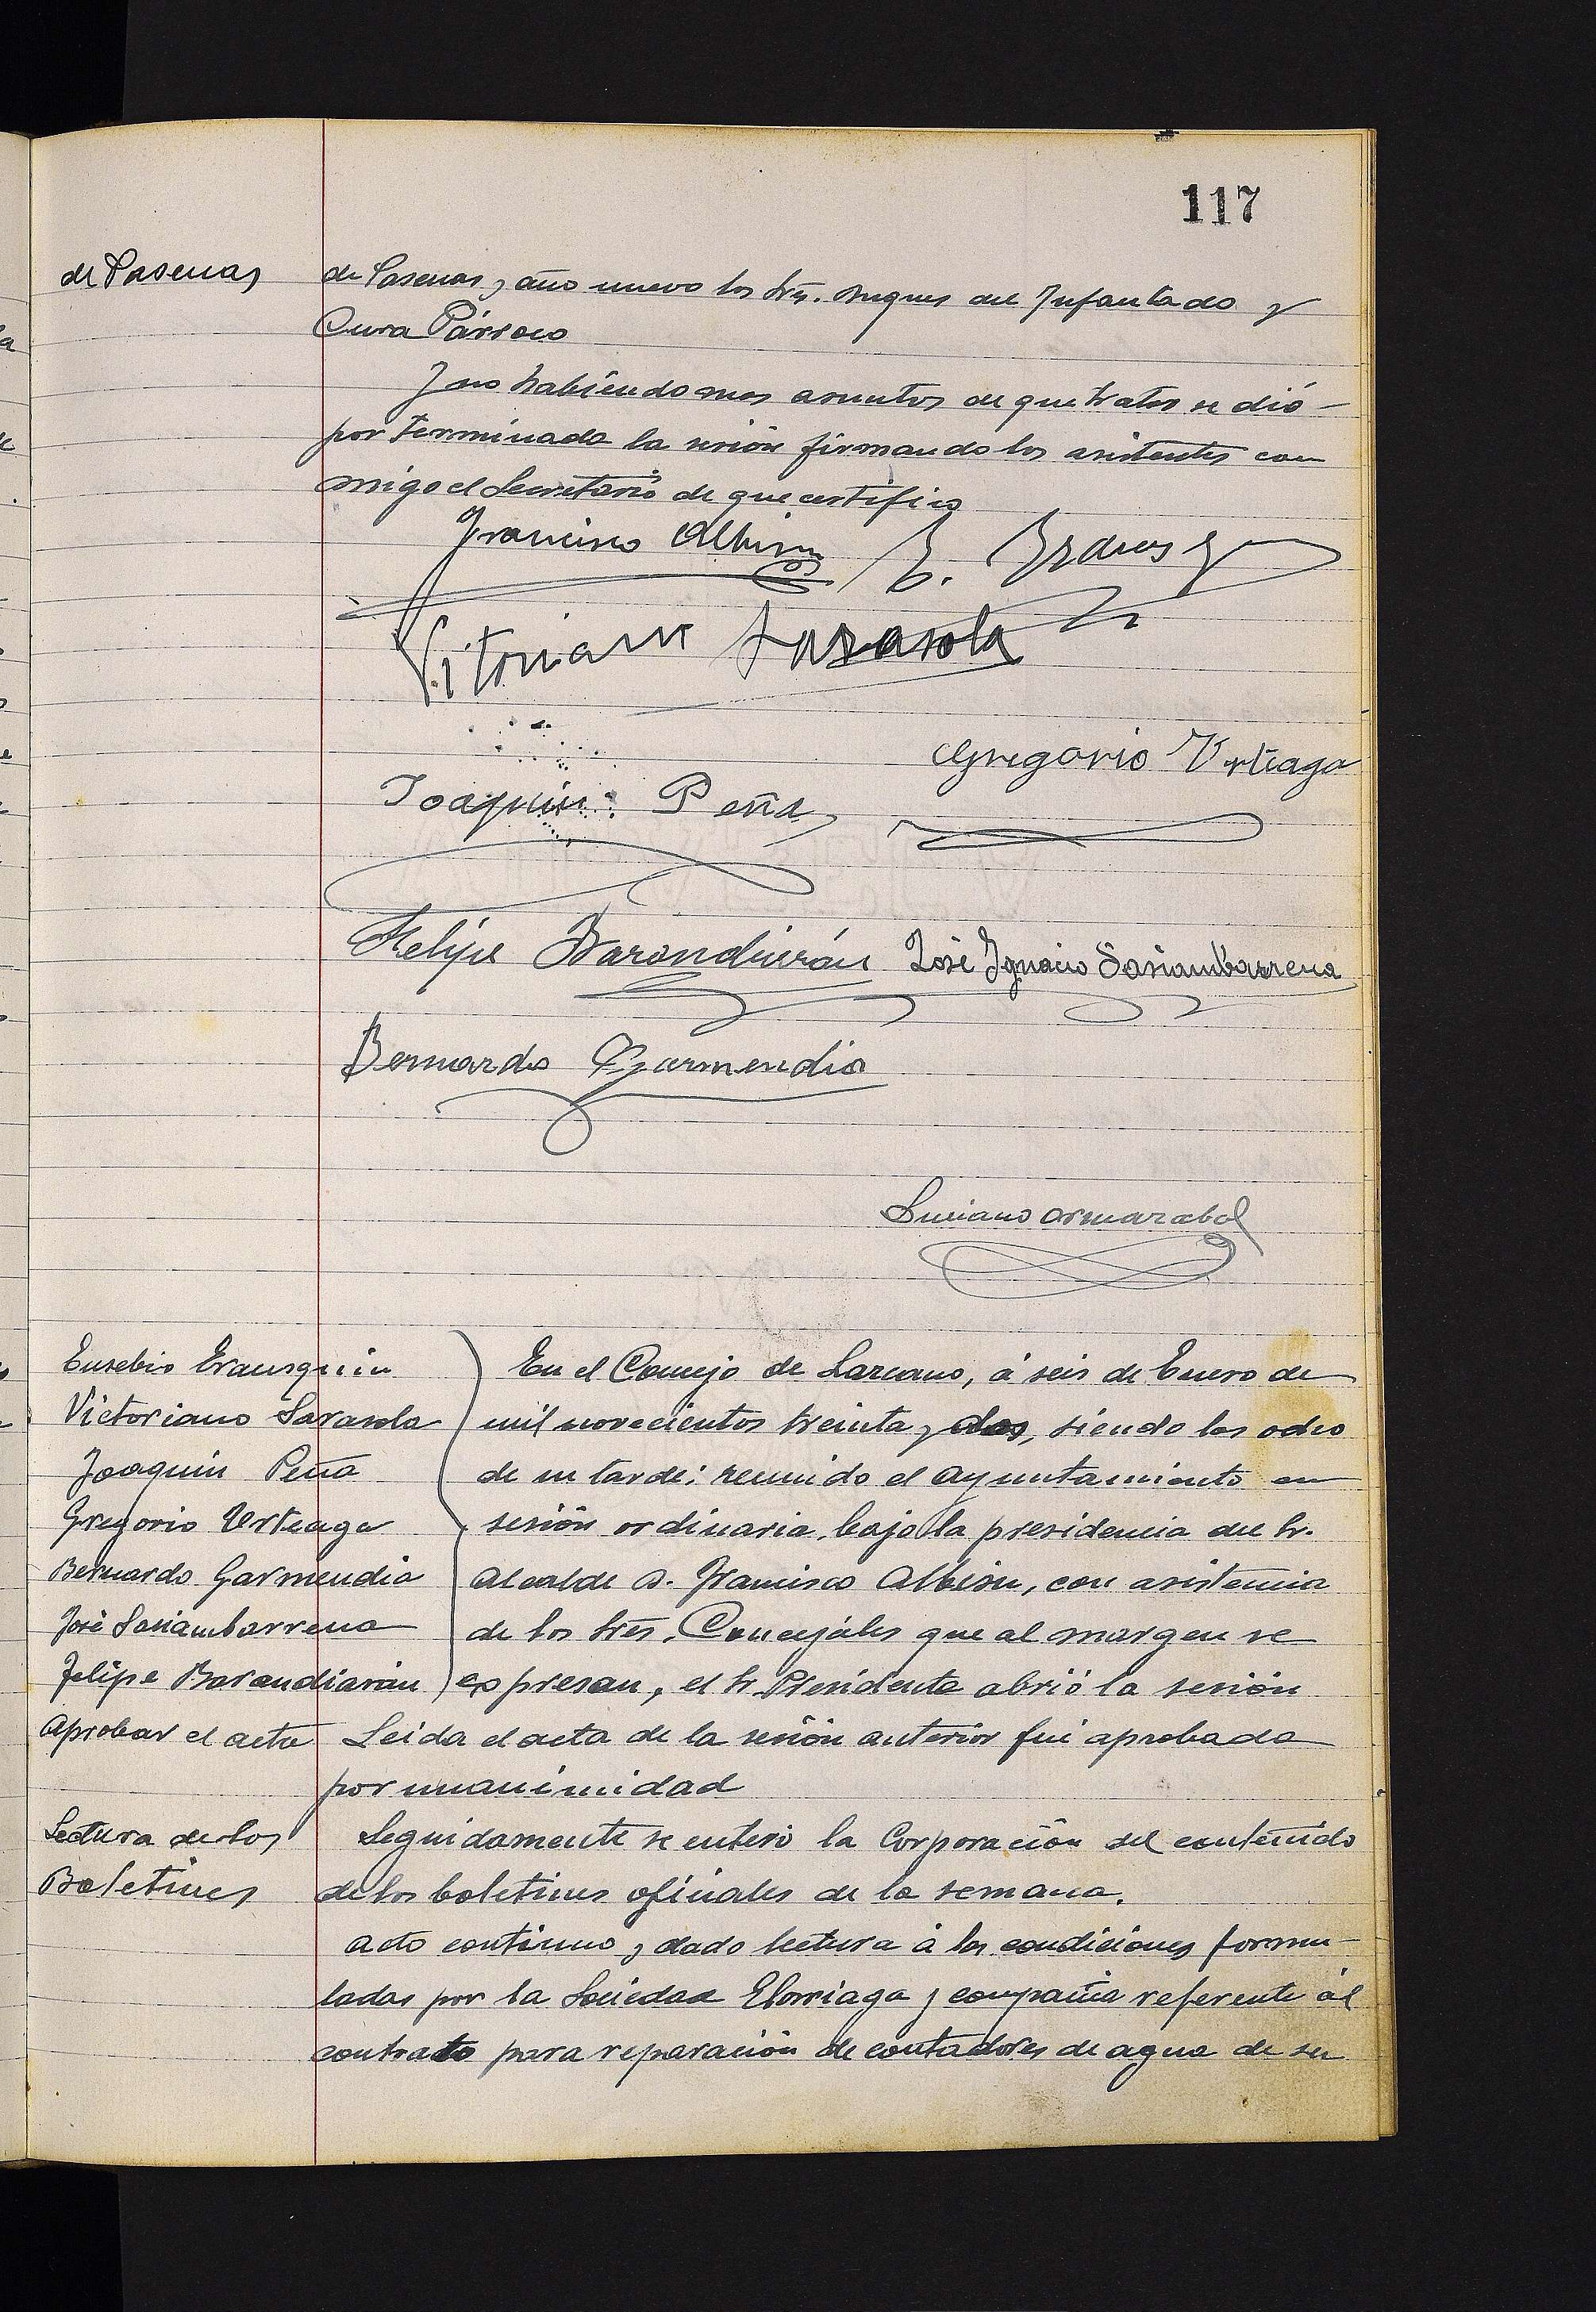 117
de Pascuas
de Pascuas y año nuevo los Srs. Duques del Infantado y
Cura Párroco
Y no habiendo mas asuntos de que tratar se dió
por terminada la sesión firmando los asistentes con
migo el Secretario de que certifico
Francisco Albisu
E. Erausq
Vitoriano Sarasola
Gregorio Urteaga
Joaquin Peña
Felipe Barandiarán José Ignacio Sasiambarrena
Bernardo Garmendia
Luciano Armarabal
Eusebio Erausquin
Victoriano Sarasola
Joaquin Peña
Gregorio Urteaga
Bernardo Garmendia
José Sasiambarrena
Felipe Barandiarán
En el Concejo de Lazcano, á seis de Enero de
mil novecientos treinta y dos, siendo las ocho
de su tarde; reunido el Ayuntamiento en
sesión ordinaria, bajo la presidencia del Sr.
Alcalde D. Francisco Albisu, con asistencia
de los Srés. Concejáles que al margen se
expresan, el Sr. Presidente abrió la sesión
Aprobar el acta
Leida el acta de la sesión anterior fué aprobada
por unanimidad
Lectura de los
Boletines
Seguidamente se enteró la Corporación del contenido
de los boletines oficiales de la semana.
Acto continuo y dado lectura á las condiciones formu-
ladas por la Sociedad Elorriaga y compañia referente al
contrato para reparación de contadores de agua de su